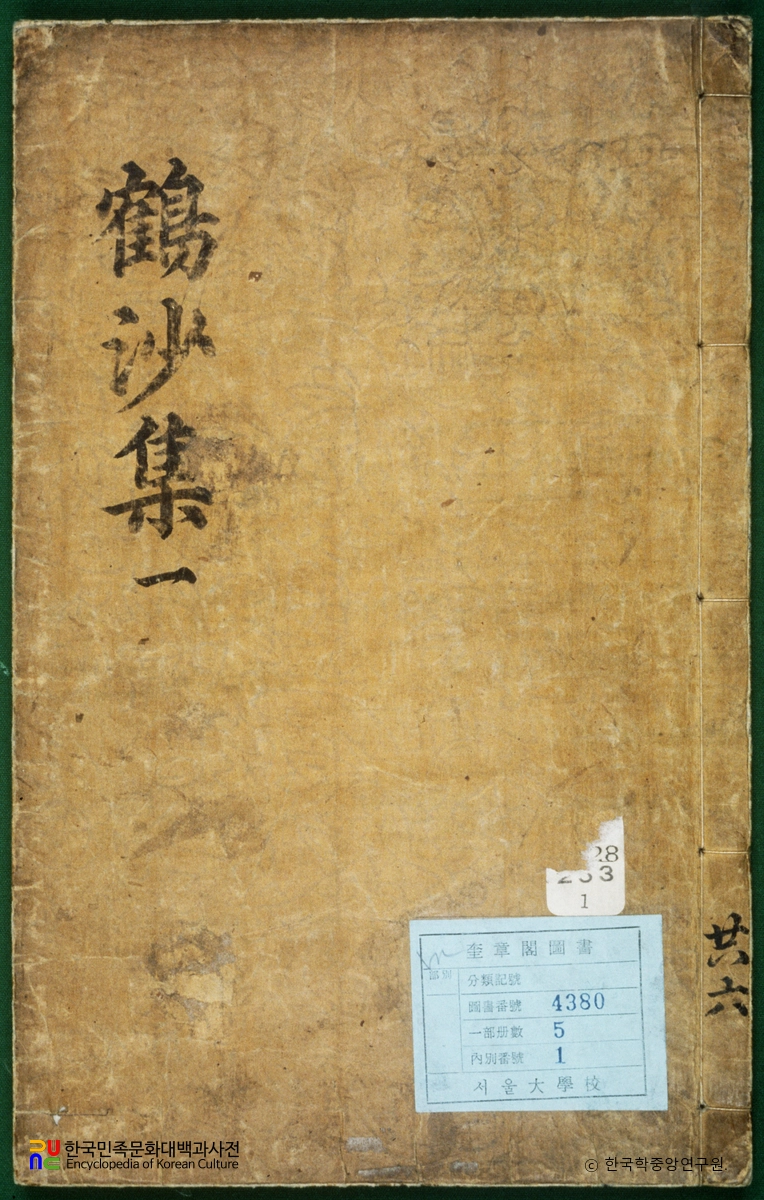 鶴沙集一
28
233
1
奎章閣圖書
分類記號
圖書番號 4380
一部册數 5
內別番號 1
서울大學校
共六
한국민족문화대백과사전
Encyclopedia of Korean Culture
© 한국학중앙연구원